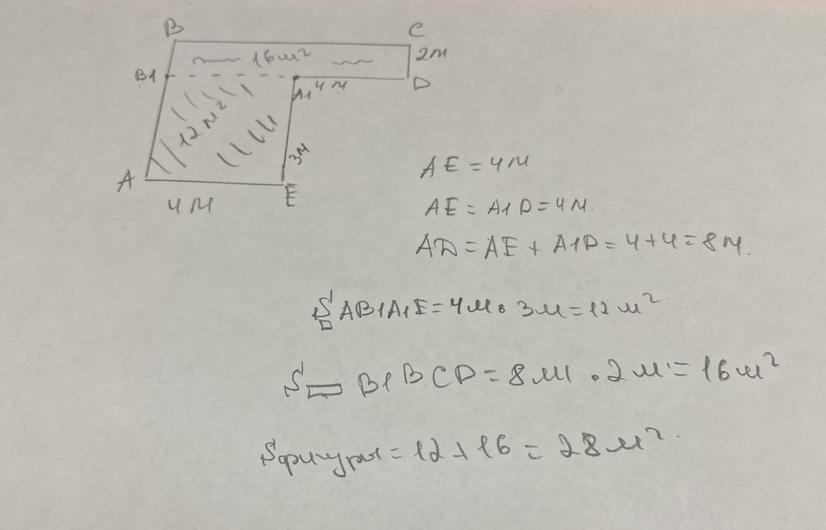 B C
16м² 2м
B1 A1 4м D
12м²
3м
A E
4м
AE = 4м
AE = A1D = 4м.
AD = AE + A1D = 4+4 = 8м.
S AB1A1E = 4м • 3м = 12м²
S B1BCD = 8м • 2м = 16м²
Sфигуры = 12+16 = 28м².